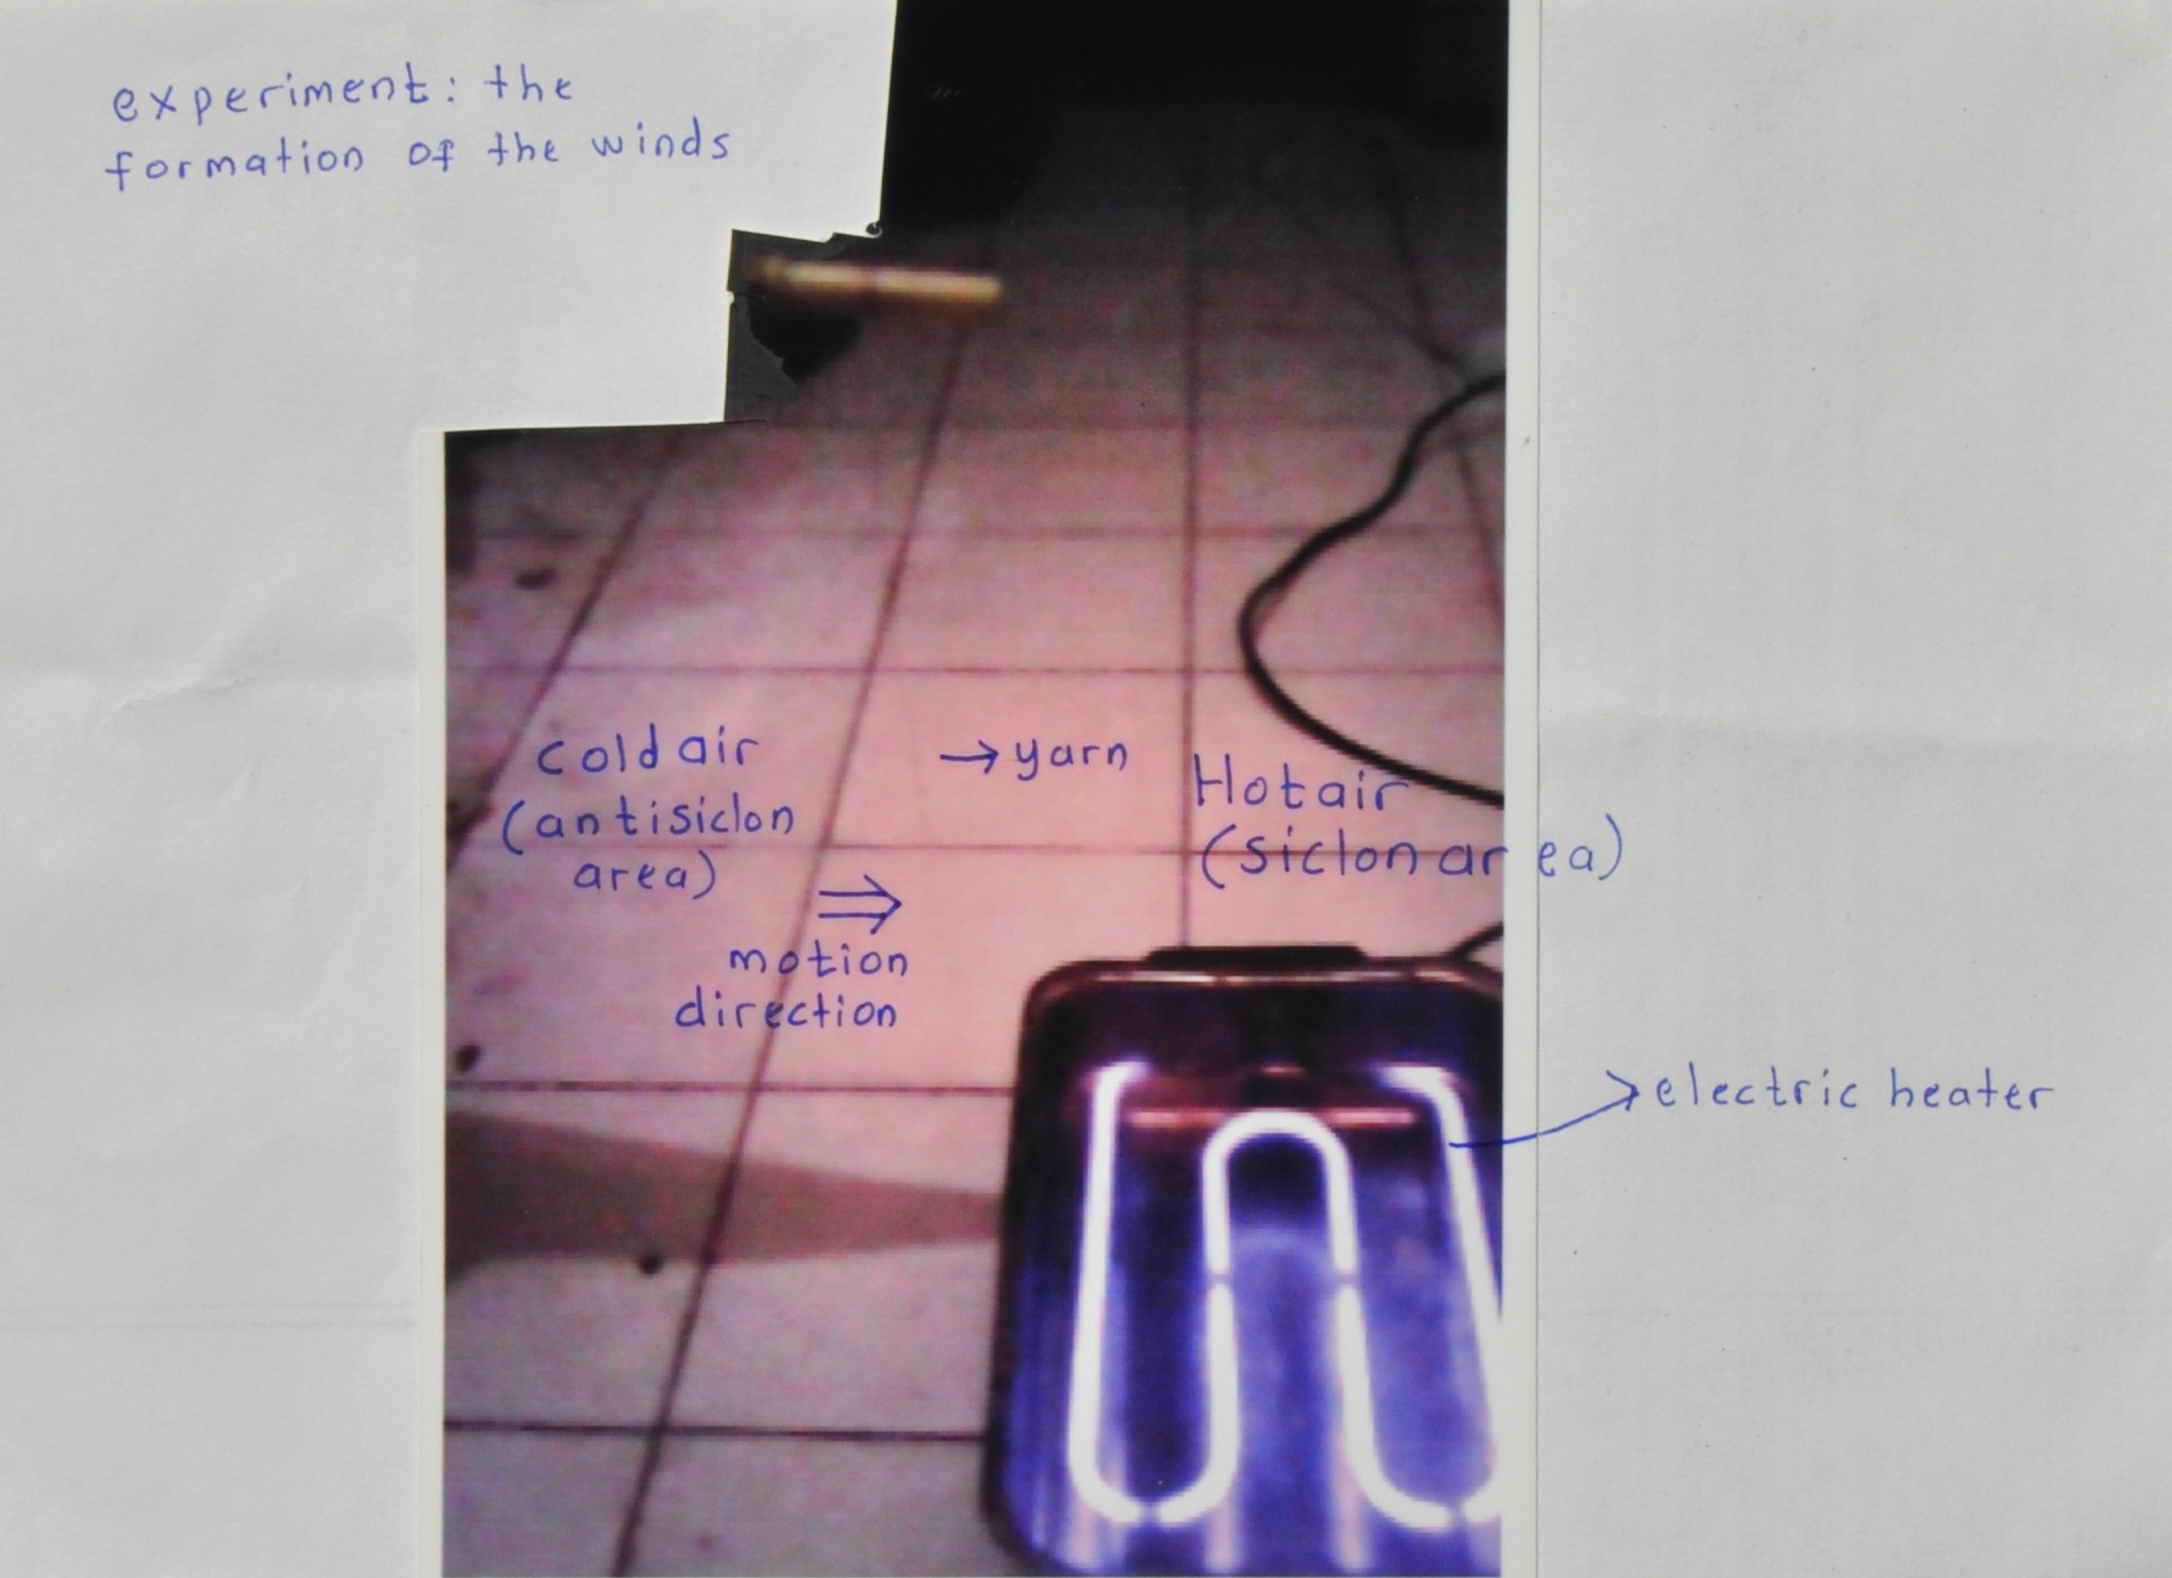 experiment: the
formation of the winds
cold air
(antisiclon
area)
→ yarn
Hot air
(siclon area)
⇒
motion
direction
→ electric heater